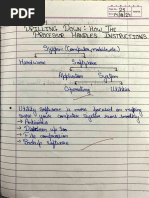 DRILLING DOWN: HOW THE
PROCESSOR HANDLES INSTRUCTIONS
System (Computer, mobile etc)
Hardware Software
Application System
Operating Utilities
Utility Software is more focused on making
sure your computer system runs smoothly
→ Antivirus
→ Disk clean up
→ File compression
→ Backup software